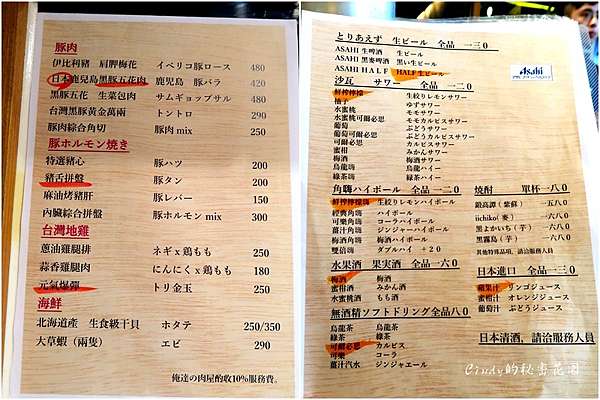 豚肉
伊比利豬 肩胛梅花 イベリコ豚ロース 480
日本鹿兒島黑豚五花肉 鹿児島 豚バラ 420
黑豚五花 生菜包肉 サムギョプサル 480
台灣黑豚黃金萬兩 トントロ 290
豚肉綜合角切 豚肉mix 250
豚ホルモン焼き
特選豬心 豚ハツ 200
豬舌拼盤 豚タン 200
麻油烤豬肝 豚レバー 150
內臟綜合拼盤 豚ホルモン mix 300
台灣地雞
蔥油雞腿排 ネギx鶏もも 250
蒜香雞腿肉 にんにくx鶏もも 180
元氣爆彈 トリ金玉 250
海鮮
北海道產 生食級干貝 ホタテ 250/350
大草蝦（兩隻） エビ 290
俺達の肉屋酌收10%服務費。
とりあえず 生ビール 全品 一三0
ASAHI 生啤酒 生ビール
ASAHI 黑麥啤酒 黒い生ビール
ASAHI HALF HALF生ビール
Asahi
沙瓦 サワー 全品 一二0
鮮榨檸檬 生絞りレモンサワー
柚子 ゆずサワー
水蜜桃 モモサワー
水蜜桃可爾必思 モモカルピスサワー
葡萄 ぶどうサワー
葡萄可爾必思 ぶどうカルピスサワー
蜜柑 みかんサワー
梅酒 梅酒サワー
烏龍嗨 烏龍ハイ
綠茶嗨 緑茶ハイ
角嗨ハイボール 全品 一二0
鮮榨檸檬嗨 生絞りレモンハイボール
經典角嗨 ハイボール
可樂角嗨 コーラハイボール
薑汁角嗨 ジンジャーハイボール
梅酒角嗨 梅酒ハイボール
雙倍嗨 ダブルハイ +20
燒酎 單杯一八0
鍛高譚（紫蘇） 一五八0
iichiko(麥) 一六八0
黑よかいち（芋） 一六八0
黑霧島（芋） 一六八0
其他特殊品項，請洽服務人員
水果酒 果実酒 全品一六0
梅酒 梅酒
蜜柑酒 みかん酒
水蜜桃酒 もも酒
日本進口 全品一三0
蘋果汁 リンゴジュース
蜜柑汁 オレンジジュース
葡萄汁 ぶどうジュース
無酒精ソフトドリング全品八0
烏龍茶 烏龍茶
綠茶 緑茶
可爾必思 カルピス
可樂 コーラ
薑汁汽水 ジンジャエール
日本清酒，請洽服務人員
Cindy的秘密花園